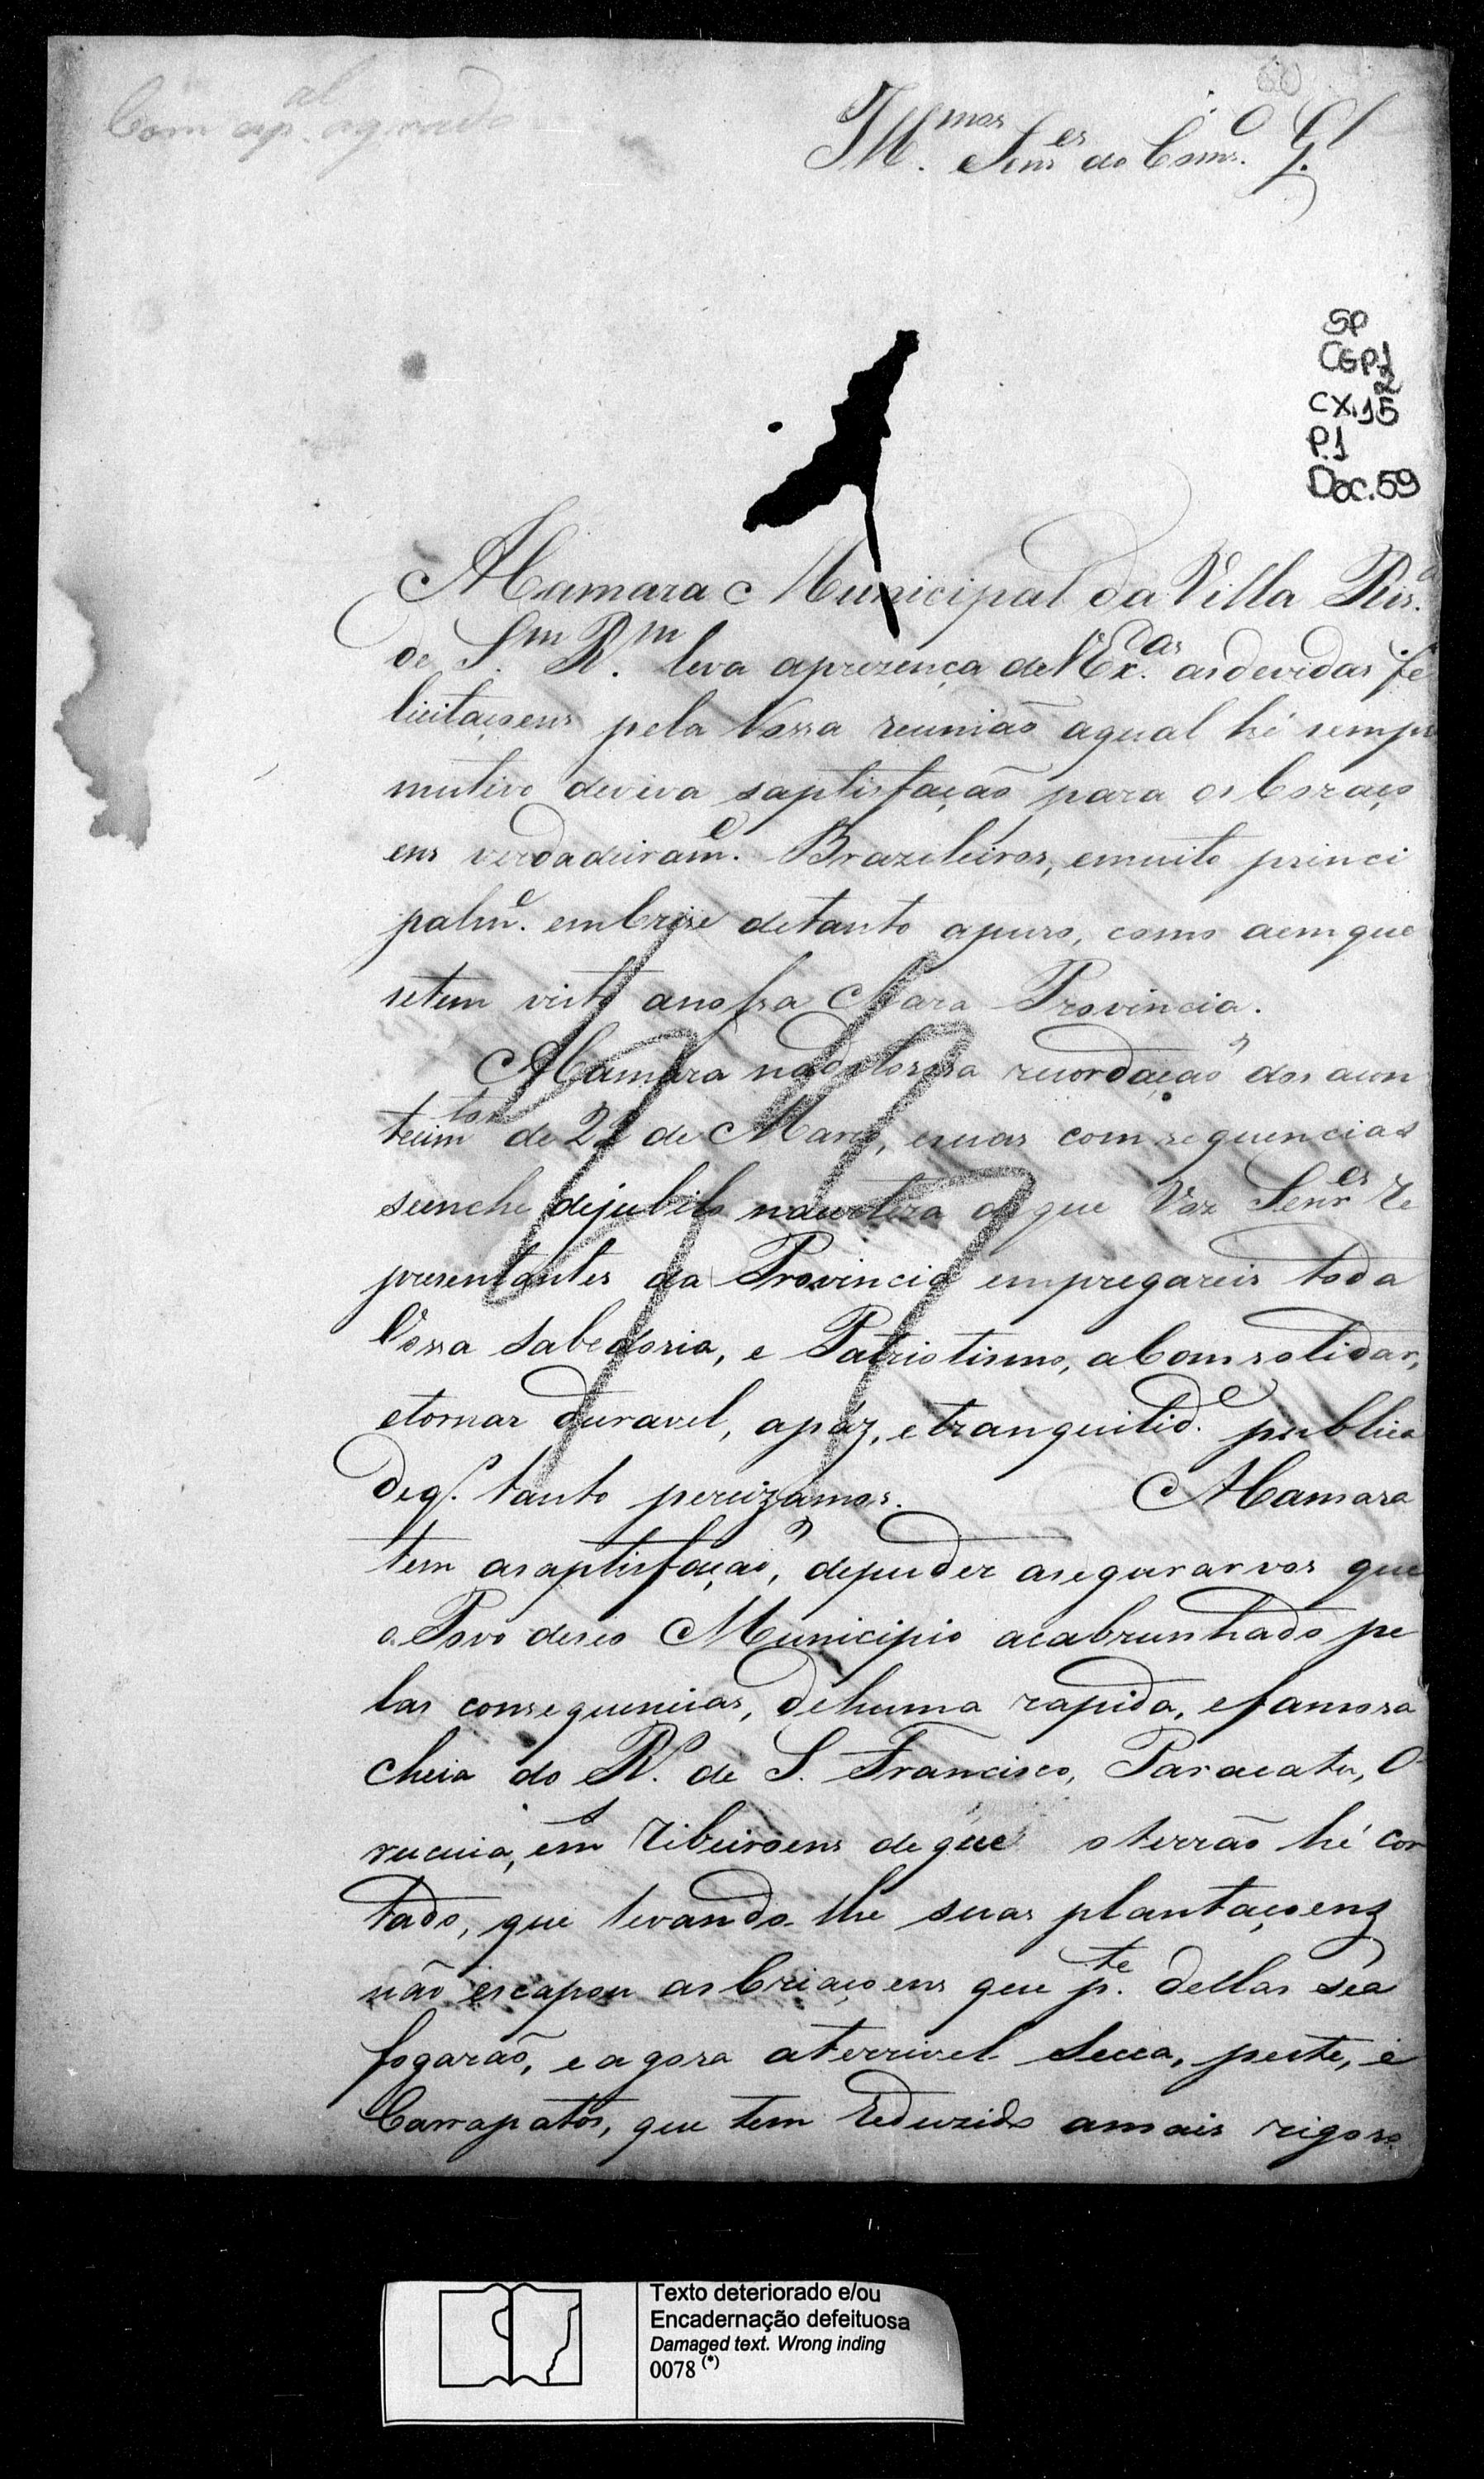 Com esp.al agrado
60
Ill.mos Senr.es do Cons.o G.l
SP
CGP1
2
CX.15
P.1
Doc.59
A Camara Municipal da Villa Ris.a
de S.m R.m leva aprezença de V Ex.as as devidas fe
licitaçoens pela Vossa reunião aqual hé sempre
mutivo deviva saptisfação para os Coraço
ens verdadeiram.e Brazileiros, emuito princi
palm.e em Crize detanto apuro, como aemque
setem visto anossa Chara Provincia.
A Camara nadolorosa recordação dos acon
tecim.tos de 22 de Março, esuas comsequencias
seenche dejubilo nacerteza deque Vos Senr.es Re
presentantes da Provincia empregareis toda
Vossa Sabedoria, e Patriotismo, aComsolidar,
etornar duravel, apáz, etranquilid.e publica
deq. tanto percizamos. A Camara
tem asaptisfação, depuder asegurarvos que
o Povo deseo Municipio acabrunhado pe
las consequencias, dehuma rapida, efamosa
cheia do R.o de S. Francisco, Paracatu, O
rucuia, em.s Ribeiroens deque oterrão hé cor
tado, que levando-lhe suas plantaçoens
não escapou as Criaçoens que p.te dellas sea
fogarão, e agora aterrivel Secca, peste, e
Carrapatos, que tem Reduzido amais rigoro
Texto deteriorado e/ou
Encadernação defeituosa
Damaged text. Wrong inding
0078 (*)